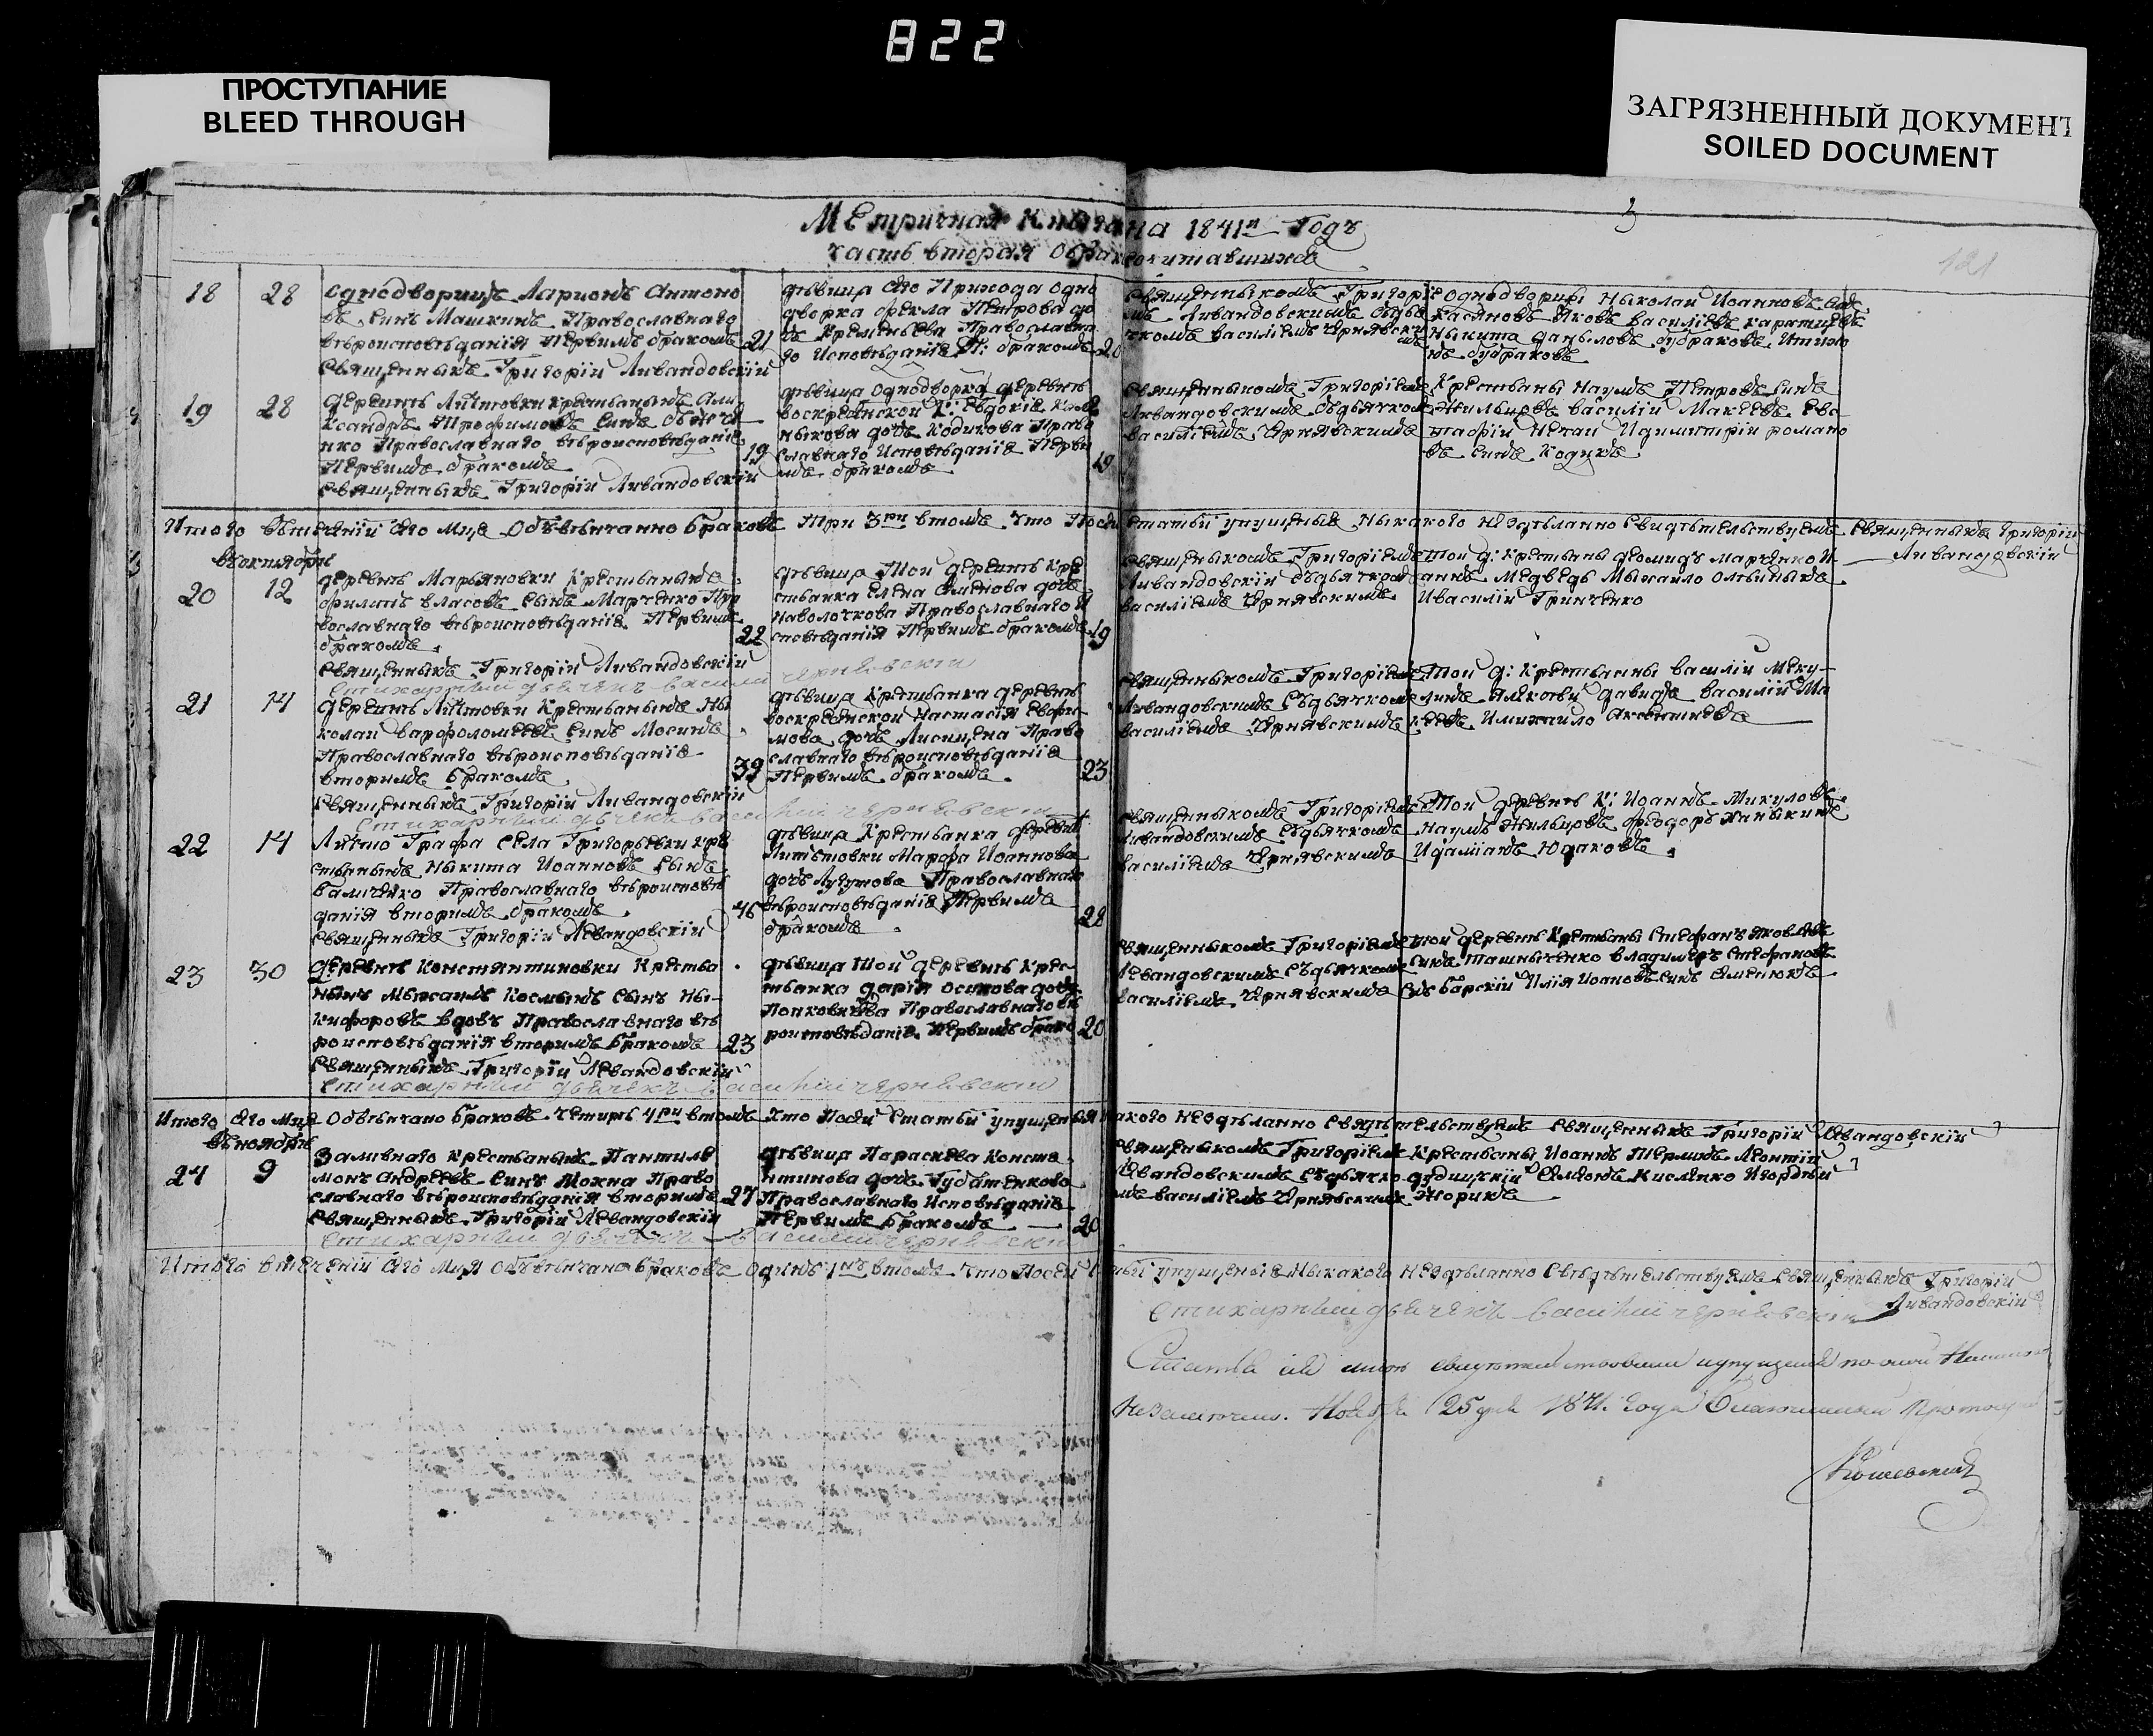 822
ПРОСТУПАНИЕ
BLEED THROUGH
ЗАГРЯЗНЕННЫЙ ДОКУМЕНТ
SOILED DOCUMENT
МЕтричная Книга на 1841й Годъ
часть вторая О бракосочитавшихся
121
18 28
Однодворицъ Ларионъ Антоно
въ Синъ Машкинъ Православнаго
вѣроисповѣданія Первимъ бракомъ 21
Священникъ Григорій Ливандовскій
дѣвица Его Прихода одно
дворка Фекла Петрова до
чъ Кременѣва Православна
го Исповѣданія П: бракомъ 20
Священныкомъ Григоріе
мъ Ливандовскимъ Съдья
чкомъ василіемъ Чрнявски
мъ
Однодворцы Ныколай Иоанновъ
Касяновъ Яковъ василіевъ
Ныкита Даныловъ Бударковъ
19 28
Деревнѣ Литовки крестьанинъ Але
ксандръ Трофимовъ Синъ
нко Православнаго вѣроисповѣданія
Первимъ бракомъ 19
Священныкъ Григорій Ливандовскій
дѣвица однодворка деревнѣ
воскресѣнской К: Евдокія
дочъ Кодикова Право
славнаго Исповѣданія Перви
мъ бракомъ 19
Священыкомъ Григоріемъ
Ливандовскимъ Съдьячком
василіемъ Чрнявскимъ
Крестьаны Наумъ Петровъ Синъ
Жильцовъ василій Макѣевъ Евс
тафій Нечай Идимитрій романо
въ Синъ Кодукъ
Итого втеченіи Его Мца Обвѣнчанно браковъ Три 3ри втомъ что Посей Статьи упущения Ныкакого Нездѣланно Свидѣтельствуемъ Священныкъ Григорій
Ливандовскій
вьоктябри
20 12
деревнѣ Марьяновки Крестьаныкъ
Филипъ власовъ Сынъ Марченко Пра
вославнаго вѣроисповѣданія Первимъ
бракомъ 22
Священныкъ Григорій Ливандовскій
Стихарный дьячекъ василій чернявскій
дѣвица Той деревнѣ Кре
стьанка Елена Семенова дочъ
Наволочкова Православнаго И
сповѣданія Первимъ бракомъ 19
Священыкомъ Григоріемъ
Ливандовскій съдьячком
василіемъ Чрнявскимъ
Той д: Крестьаны демидъ Марченко И
анъ Медведь Мыхайло
Ивасилій Гринченко
21 14
деревнѣ Литовки Крестьаныкъ Ны
колай варфоломеевъ Синъ Мосинъ
Православнаго вѣроисповѣданія
вторимъ Бракомъ 39
Священныкъ Григорій Ливандовскій
Стихарный дьячекъ василій чернявскій
дѣвица Крестьанка деревнѣ
воскресѣнской Настасія Ефре
мова дочъ Лисицена Право
славнаго вѣроисповѣданія
Первимъ бракомъ 23
Священыкомъ Григоріемъ
Ливандовскимъ Съдьячком
василіемъ Чрнявскимъ
Той д: Крестьаны василій Мику
линъ давидъ василій Ма
кѣевъ Имихайло
22 14
Литто Графа Села Григорьевки кре
стьаныкъ Ныкита Иоанновъ Сынъ
Православнаго вѣроисповѣ
данія вторимъ бракомъ 46
Священныкъ Григорій Левандовскій
дѣвица Крестьанка деревнѣ
Литѣтовки Марфа Иоаннова
дочъ Лугутова Православнаго
вѣроисповѣданія Первимъ
бракомъ 28
Священыкомъ Григоріемъ
Ливандовскимъ Съдьячкомъ
василіемъ Чрнявскимъ
Той деревнѣ К: Иоаннъ Микуловъ
Наумъ Жильцовъ Федоръ
Идаміанъ Юдаковъ
23 30
деревнѣ Константиновки Крестьа
нынъ Мыхаилъ Космынъ Сынъ Ны
кифоровъ вдовъ Православнаго вѣ
роисповѣданія вторимъ Бракомъ 23
Священныкъ Григорій Левандовскій
Стихарный дьячекъ василій чернявскій
дѣвица той деревнѣ Крес
тьанка дарія Осипова дочъ
Православнаго вѣ
роисповѣданія Первимъ брако 20
Священныкомъ Григоріемъ
Левандовскимъ Съдьячкомъ
василіемъ Чрнявскимъ
той деревнѣ Крестьаны Стефанъ Яковлевъ
Синъ владимеръ Стефановъ
барскій Илія Иоановъ Синъ Семенюкъ
Итого Его Мца Обвѣнчано браковъ четирѣ 4ри втомъ Что Посей Статьи упущения Ныкакого Нездѣланно Свидѣтельствуемъ Священныкъ Григорій Левандовскій
вьноябрѣ
24 9
Заливнаго крестьанынъ Пантиле
монъ Андреевъ Синъ Можна Право
славнаго вѣроисповѣданія вторимъ 27
Священныкъ Григорій Левандовскій
Стихарный дьячекъ василій чернявскій
дѣвица Параскева Конста
нтинова дочъ Губатенкова
Православнаго Исповѣданія
Первимъ бракомъ 20
Священыкомъ Григоріемъ
Левандовскимъ Съдьячко
мъ василіемъ Чрнявскимъ
Крестьаны Иоанъ Леонтій
дудицкій Семіонъ Кисленко Игордѣй
Жорикъ
Итого втеченіи Его Мца Обвѣнчано браковъ Одинъ 1нъ втомъ что Посей Статьи упущения Ныкакого Нездѣланно Свѣдѣтельствуемъ Священныкъ Григорій
Ливандовскій
Стихарный дьячекъ василій чернявскій
Статьи сіи свидѣтельствовалъ и упущеній по оной
не замѣчено. Ноября 25 дня 1841 года Благочинный Протоіерей